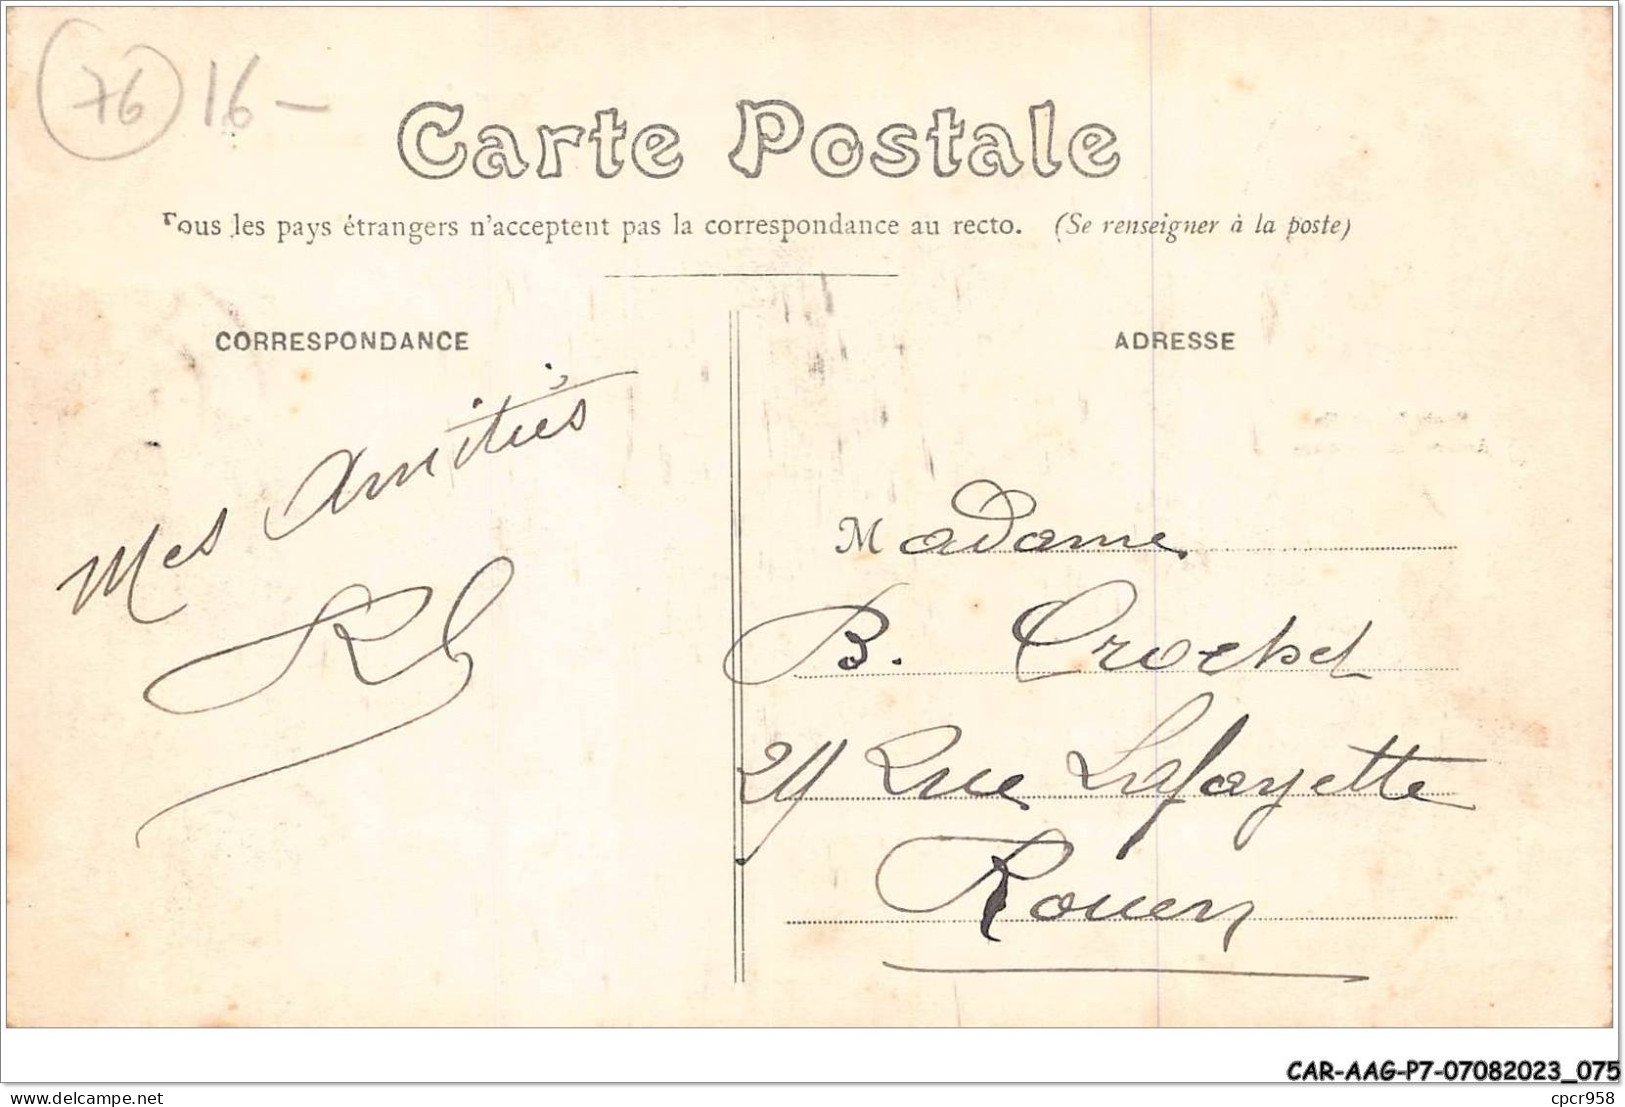 76 16 –
Carte Postale
Tous les pays étrangers n'acceptent pas la correspondance au recto. (Se renseigner à la poste)
CORRESPONDANCE
Mes Amitiés
ADRESSE
Madame
B. Crochet
Rue Lafayette
Rouen
CAR-AAG-P7-07082023_075
delcampe.net
cpcr958